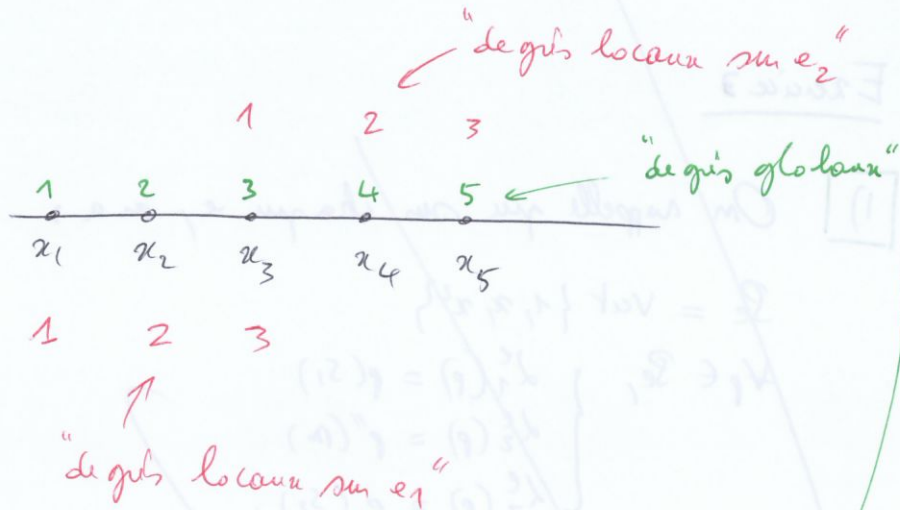 "degrés locaux sur e2"
1 2 3
"degrés globaux"
1 2 3 4 5
x1 x2 x3 x4 x5
1 2 3
"degrés locaux sur e1"